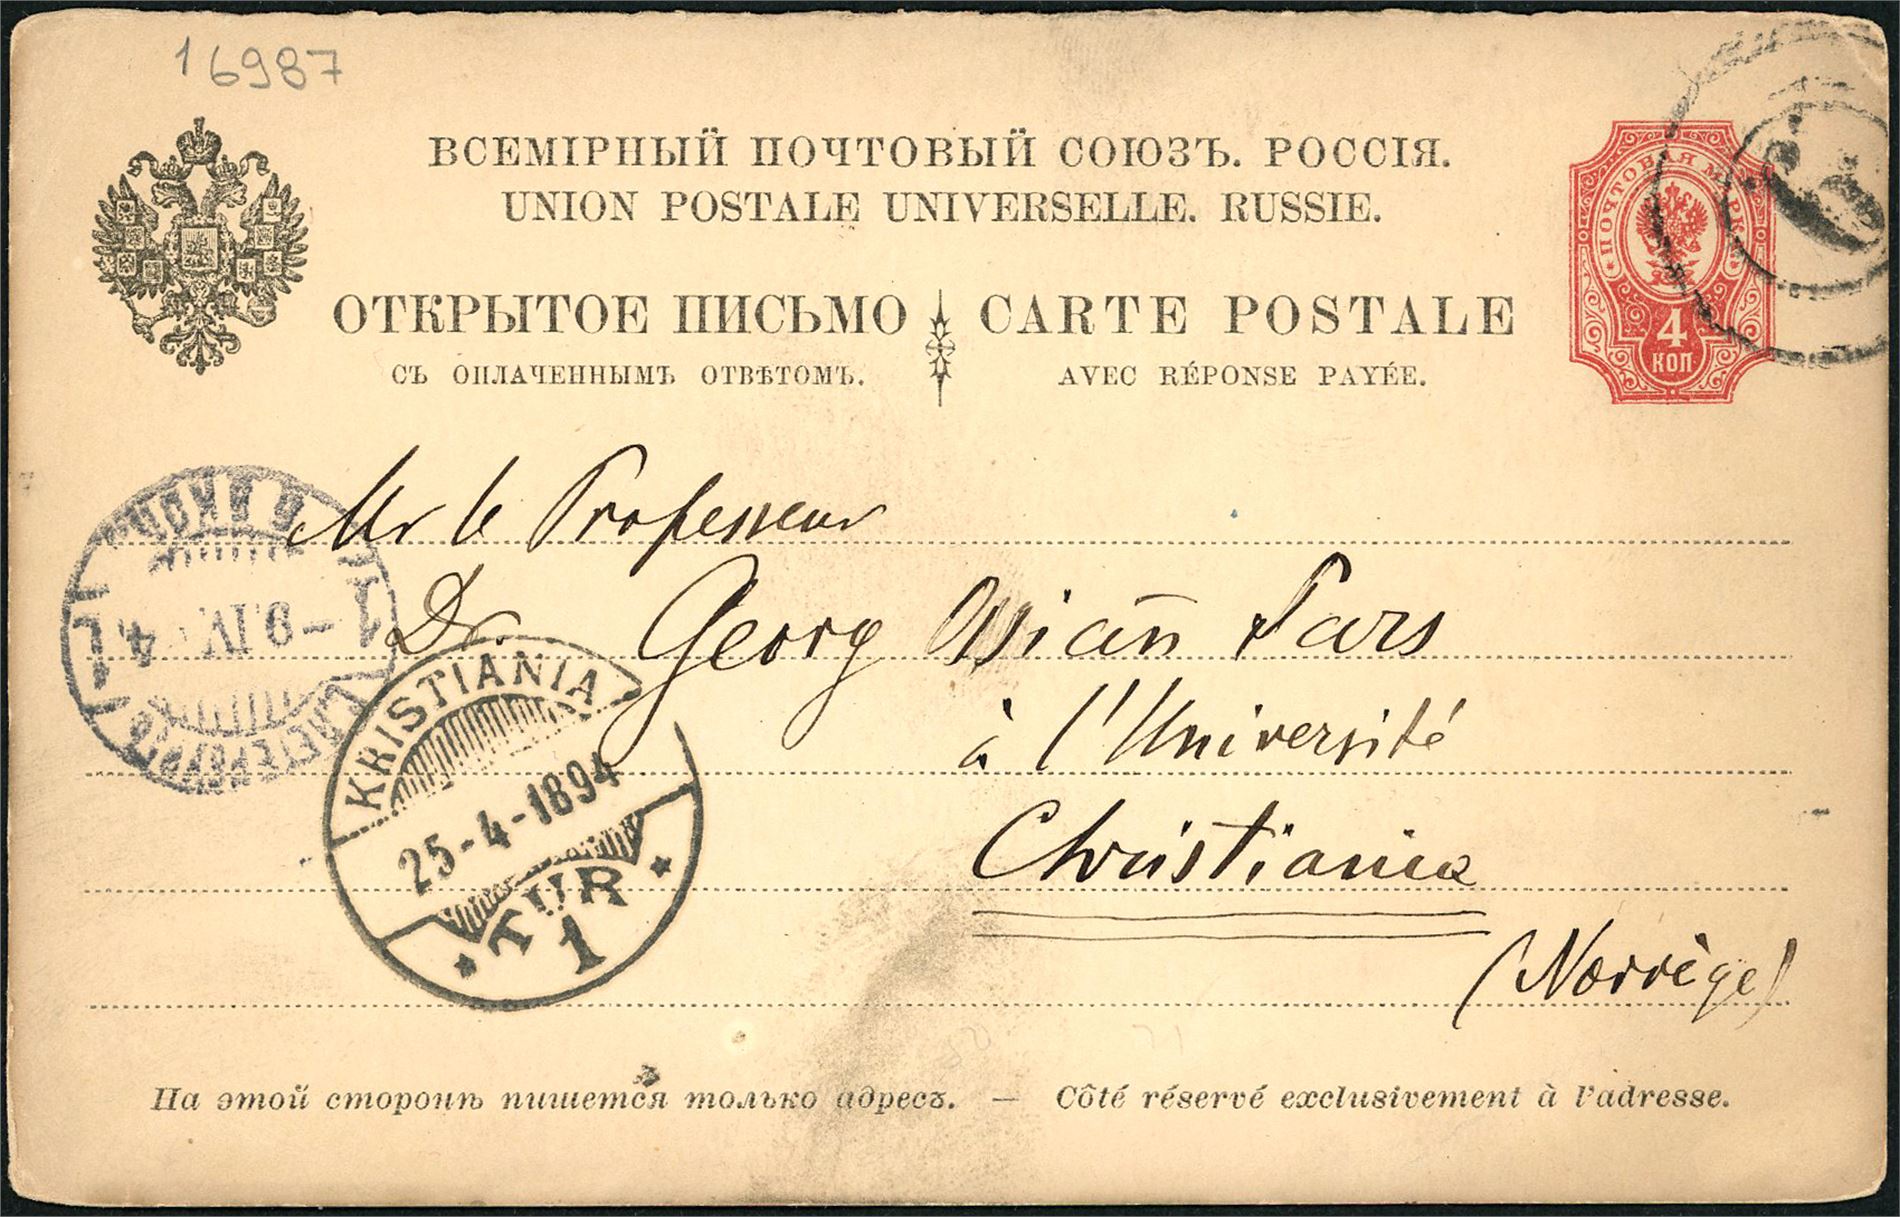 16987
ВСЕМІРНЫЙ ПОЧТОВЫЙ СОЮЗЪ. РОССІЯ.
UNION POSTALE UNIVERSELLE. RUSSIE.
ОТКРЫТОЕ ПИСЬМО CARTE POSTALE
СЪ ОПЛАЧЕННЫМЪ ОТВѢТОМЪ. AVEC RÉPONSE PAYÉE.
ПОЧТОВАЯ МАРКА
4
КОП
Mr le Professeur
Dr. Georg Ossian Sars
à l'Université
Christiania
(Norvège)
1
9.IV
4
1
С.ПЕТЕРБУРГЪ
KRISTIANIA
25-4-1894
TUR
1
На этой сторонѣ пишется только адресъ. — Côté réservé exclusivement à l'adresse.